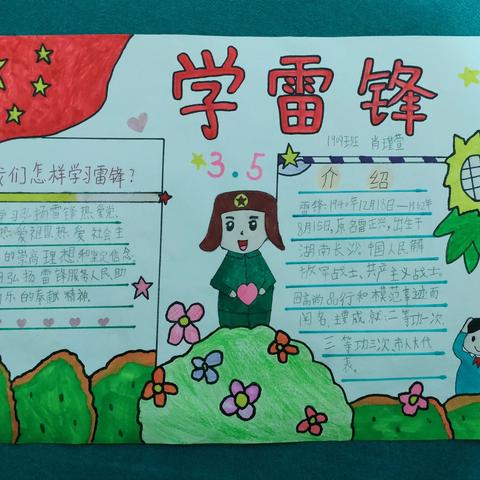 学雷锋
1909班 肖瑾萱
3.5
我们怎样学习雷锋？
学习弘扬雷锋热爱党、
热爱祖国热爱社会主
的崇高理想和坚定信念。
弘扬雷锋服务人民、助
为乐的奉献精神。
介绍
雷锋，1940年12月18日—1962年
8月15日，原名雷正兴，出生于
湖南长沙。中国人民解
放军战士、共产主义战士。
因高的品行和模范事迹而
闻名，主要成就：二等功一次、
三等功三次、市人大代
表。